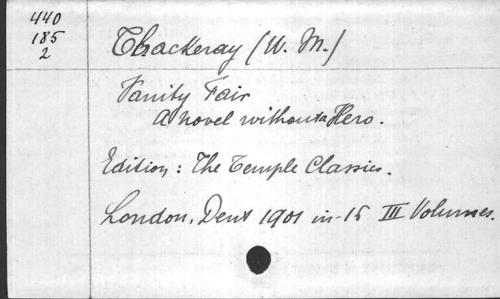 440
185
2
Thackeray (W. M.)
Vanity Fair
A novel without a Hero.
Edition: The Temple Classics.
London, Dent 1901 in-16 III Volumes.